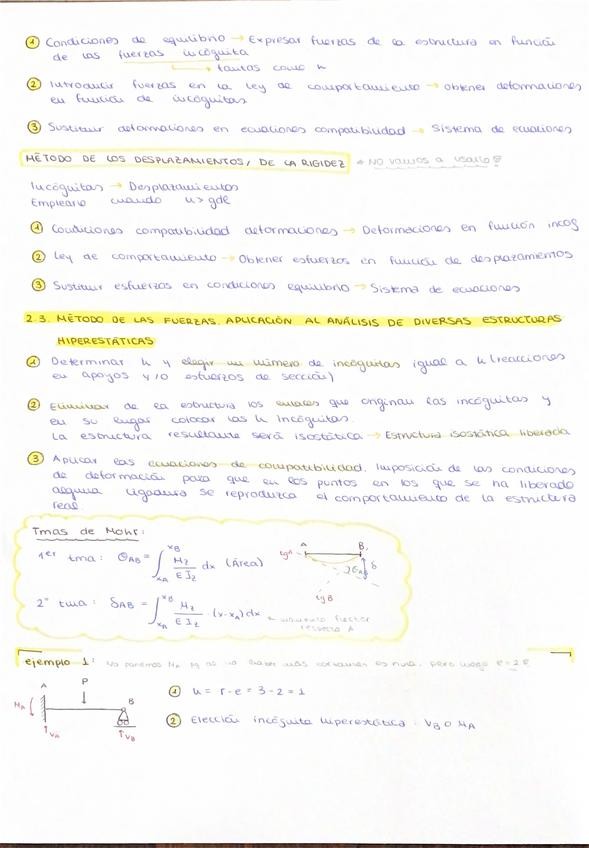 ① Condiciones de equilibrio → Expresar fuerzas de la estructura en función
de las fuerzas incógnita
→ tantas como h
② Introducir fuerzas en la ley de comportamiento → obtener deformaciones
en función de incógnitas
③ Sustituir deformaciones en ecuaciones compatibilidad → Sistema de ecuaciones
MÉTODO DE LOS DESPLAZAMIENTOS / DE LA RIGIDEZ * NO vamos a usarlo
Incógnitas → Desplazamientos
Emplearlo cuando h > gdl
① Condiciones compatibilidad deformaciones → Deformaciones en función incog
② Ley de comportamiento → Obtener esfuerzos en función de desplazamientos
③ Sustituir esfuerzos en condiciones equilibrio → Sistema de ecuaciones
2.3. MÉTODO DE LAS FUERZAS. APLICACIÓN AL ANÁLISIS DE DIVERSAS ESTRUCTURAS
HIPERESTÁTICAS
① Determinar h y elegir un número de incógnitas igual a h (reacciones
en apoyos y/o esfuerzos de sección)
② Eliminar de la estructura los enlaces que originan las incógnitas y
en su lugar colocar las h incógnitas.
La estructura resultante será isostática → Estructura isostática liberada
③ Aplicar las ecuaciones de compatibilidad. Imposición de las condiciones
de deformación para que en los puntos en los que se ha liberado
alguna ligadura se reproduzca el comportamiento de la estructura
real
Tmas de Mohr:
1er tma: θAB = ∫xA^xB Mz/(E Iz) dx (Área)
A B
tgA θAB δ
tgB
2º tma: δAB = ∫xA^xB Mz/(E Iz) · (x-xA) dx ← momento flector
respecto A
ejemplo 1: no ponemos HA pq al no haber más es nula, pero luego e=2
A P B
MA VA VB
① h = r - e = 3 - 2 = 1
② Elección incógnita hiperestática: VB o MA